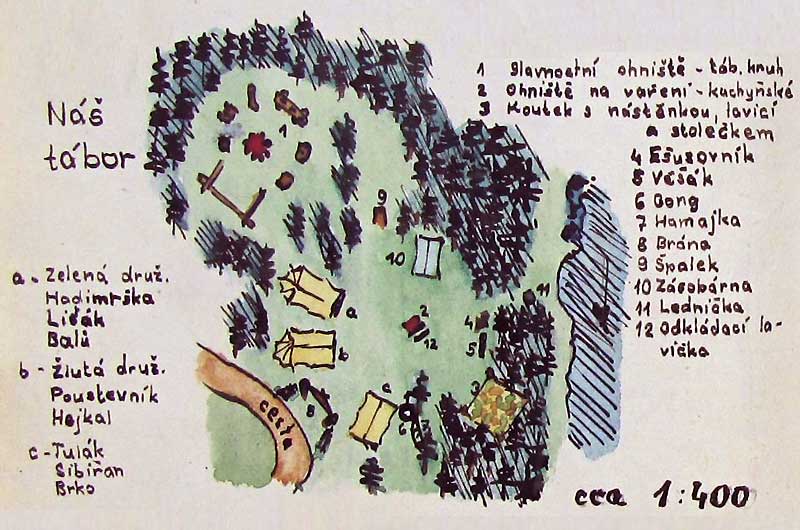 Náš
tábor
1 Slavnostní ohniště - táb. kruh
2 Ohniště na vaření - kuchyňské
3 Koutek s nástěnkou, lavicí
a stolečkem
4 Ešusovník
5 Věšák
6 Gong
7 Hamajka
8 Brána
9 Špalek
10 Zásobárna
11 Lednička
12 Odkládací la-
vička
a - Zelená druž.
Hadimrška
Lišák
Balů
b - Žlutá druž.
Poustevník
Hejkal
c - Tulák
Sibiřan
Brko
1
9
10
11
a
2
12
4
5
b
c
3
8
6
7
cesta
cca 1:400